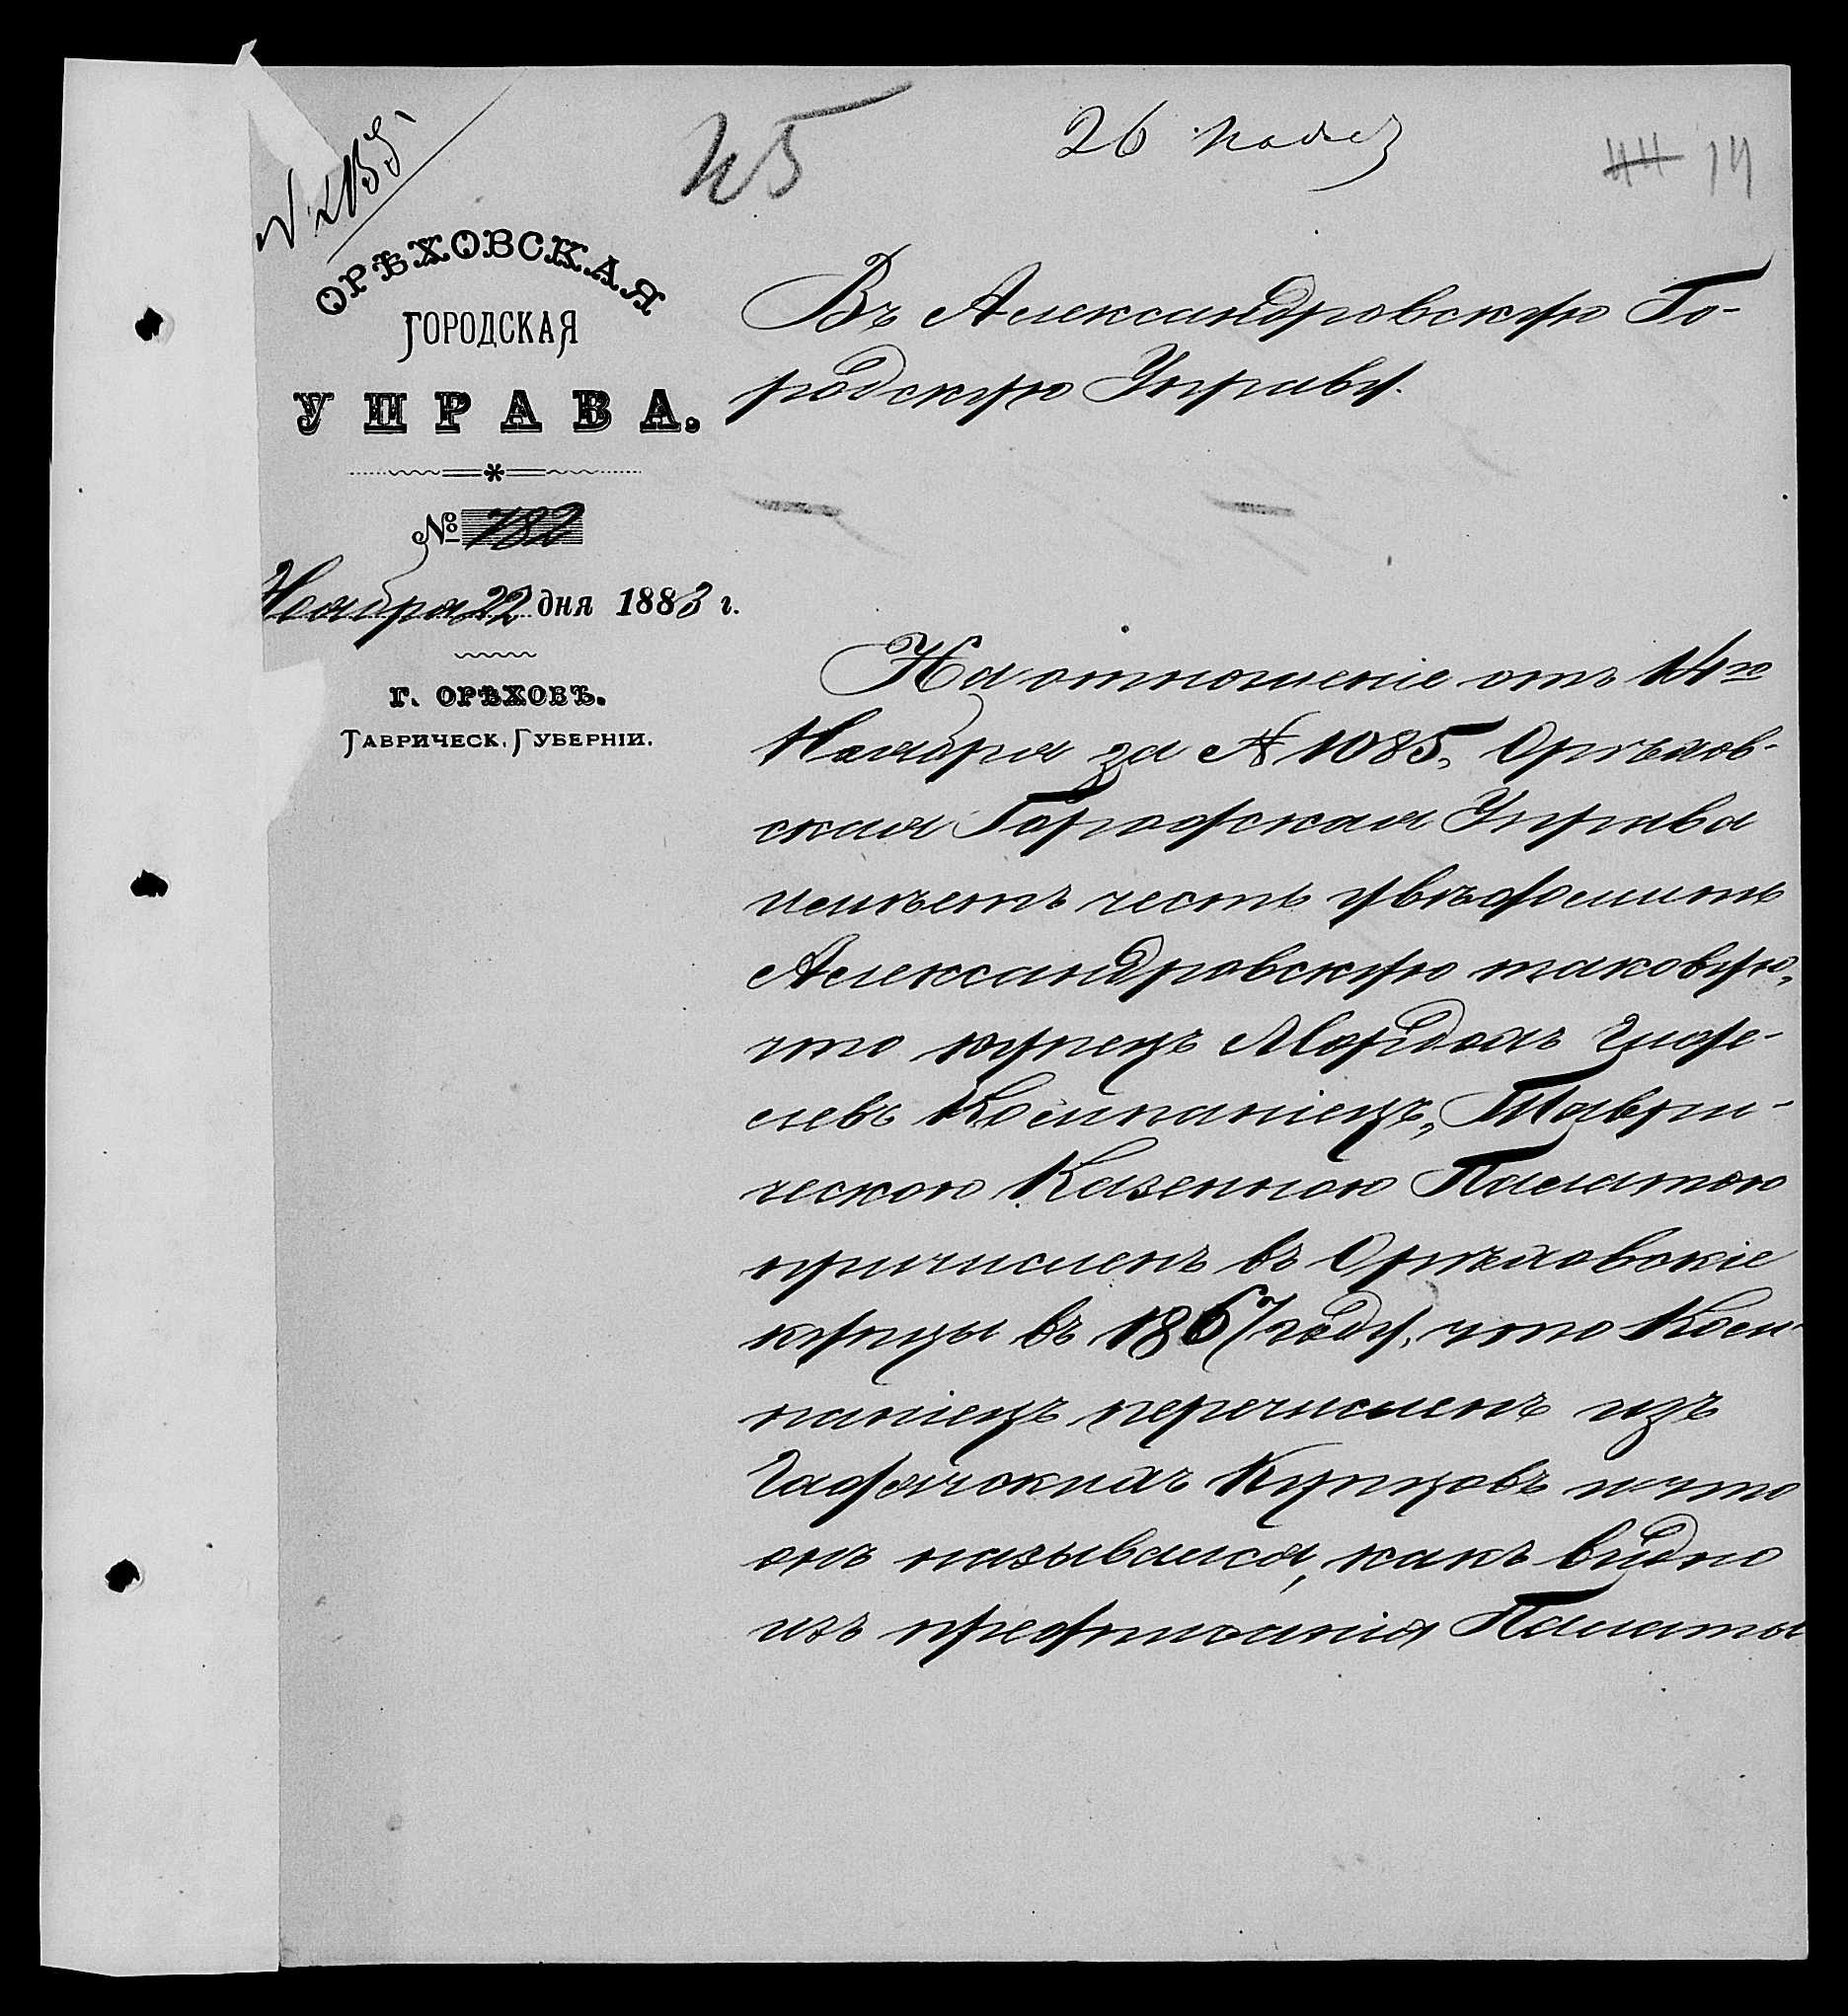 26 Нояб
44 14
ОРѢХОВСКАЯ
ГОРОДСКАЯ
УПРАВА.
№ 782
Ноября 22 дня 1883 г.
Г. ОРѢХОВЪ.
ТАВРИЧЕСК. ГУБЕРНІИ.
Въ Александровскую Го-
родскую Управу.
На отношеніе отъ 14го
Ноября за № 1085, Орѣхов-
ская Городская Управа
имѣетъ честь увѣдомить
Александровскую таковую,
что купецъ Мордохъ
Компаніецъ, Таври-
ческою Казенною Палатою
причисленъ въ Орѣховскіе
купцы въ 1867 году, что Ком-
паніецъ перечисленъ изъ
Гадячскихъ Купцовъ и что
онъ назывался, какъ видно
изъ предписанія Палаты